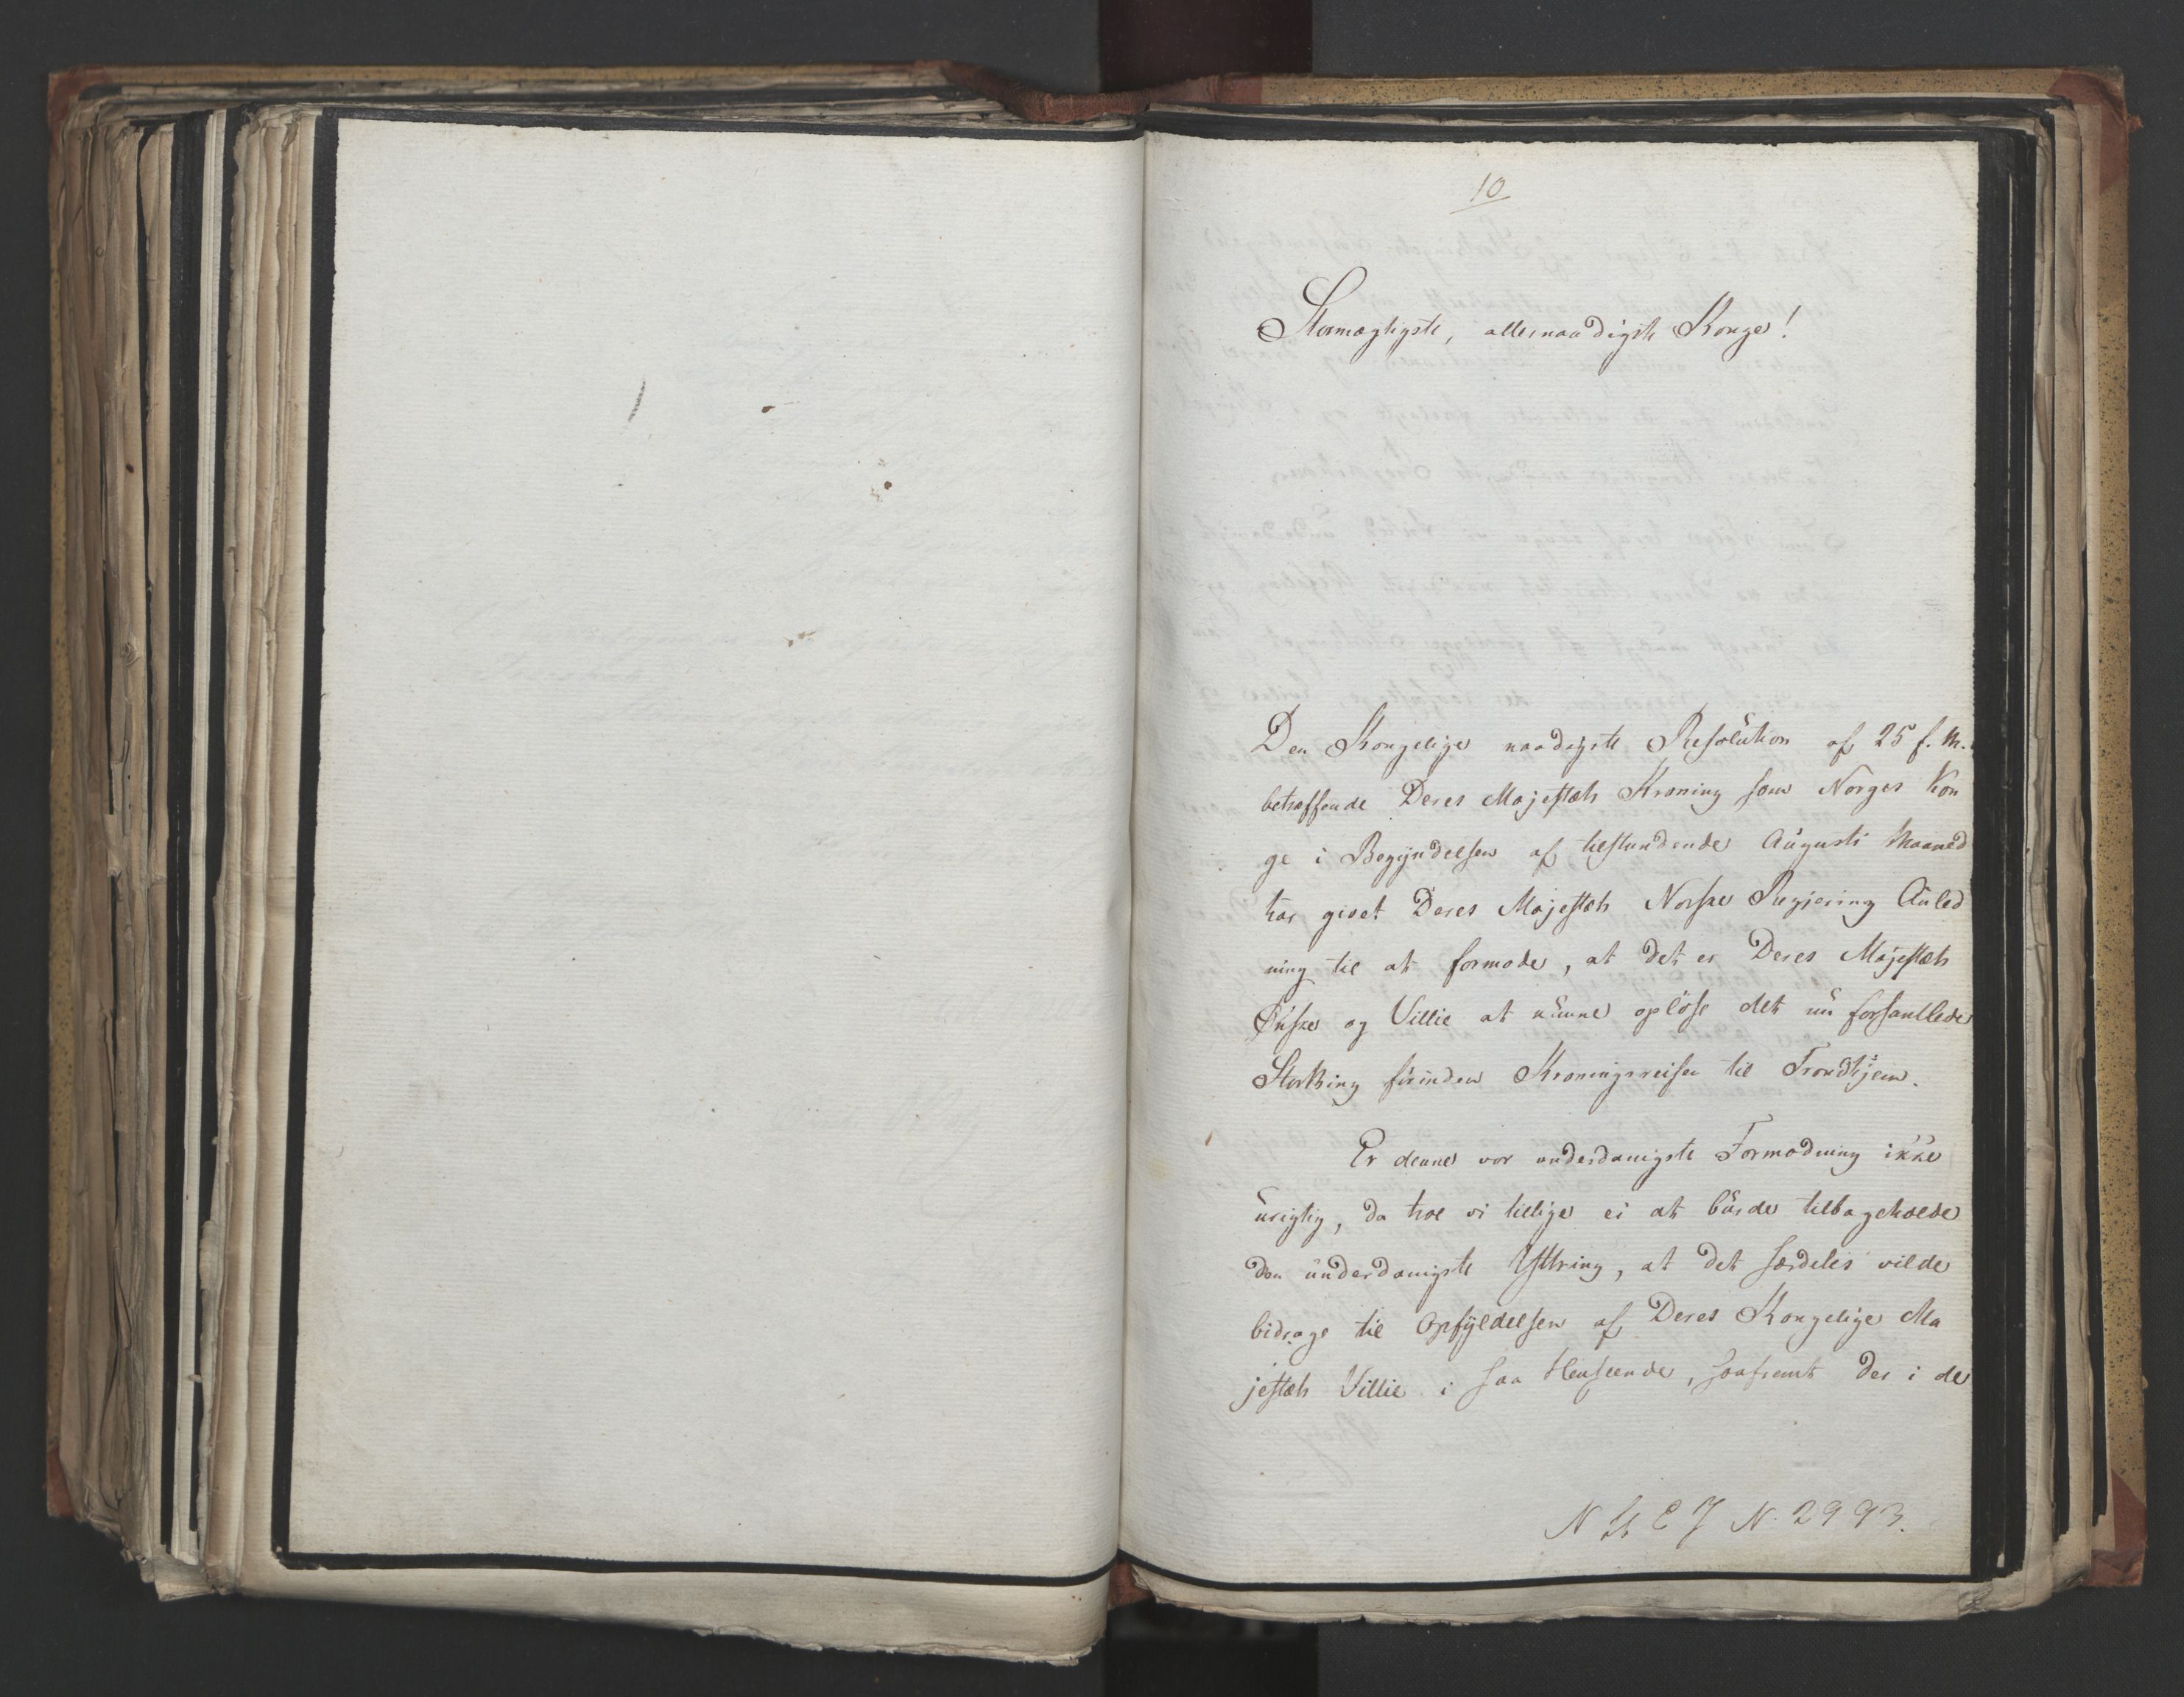 10
Stormægtigste, allernaadigste Konge!
Den Kongelige naadigste Resolution af 25 f. M.
betræffende Deres Majestæts Kroning som Norges Kon
ge i Begyndelsen af tilstundende Augusti Maaned
har givet Deres Majestæts Norske Regiering Anled
ning til at formode, at det er Deres Majestæts
Ønske og Villie at kunne opløse det nu forsamlede
Storthing forinden Kroningsreisen til Trondhjem.
Er denne vor underdanigste Formodning ikke
urigtig, da troe vi tillige ei at burde tilbageholde
den underdanigste Yttring, at det særdeles vilde
bidrage til Opfyldelsen af Deres Kongelige Ma
jestæts Villie i saa Henseende, saafremt der i de
N 2993.